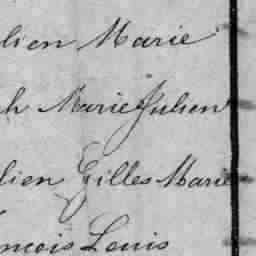 lien Marie
h Marie Julien
lien Gilles Marie
ncois Louis